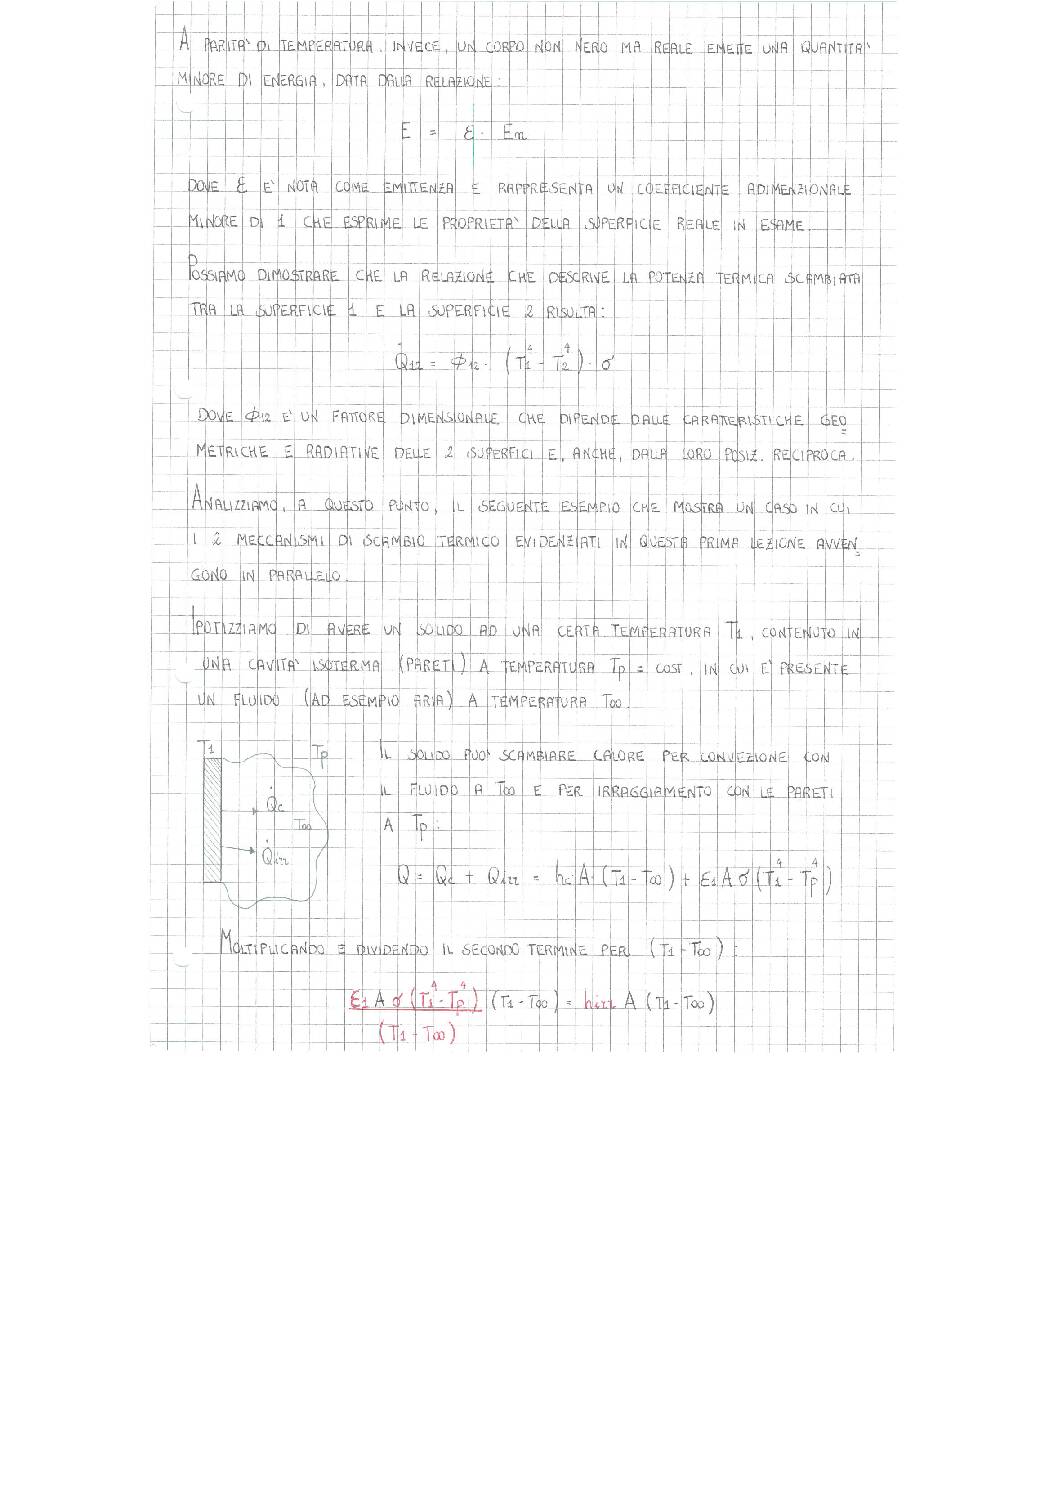 A PARITA' DI TEMPERATURA, INVECE, UN CORPO NON NERO MA REALE EMETTE UNA QUANTITA'
MINORE DI ENERGIA, DATA DALLA RELAZIONE:
E = ε · En
DOVE ε E' NOTA COME EMITTENZA E RAPPRESENTA UN COEFFICIENTE ADIMENZIONALE
MINORE DI 1 CHE ESPRIME LE PROPRIETA' DELLA SUPERFICIE REALE IN ESAME.
POSSIAMO DIMOSTRARE CHE LA RELAZIONE CHE DESCRIVE LA POTENZA TERMICA SCAMBIATA
TRA LA SUPERFICIE 1 E LA SUPERFICIE 2 RISULTA:
Q̇12 = ϕ12 · (T1⁴ - T2⁴) · σ
DOVE ϕ12 E' UN FATTORE DIMENSIONALE CHE DIPENDE DALLE CARATTERISTICHE GEO
METRICHE E RADIATIVE DELLE 2 SUPERFICI E, ANCHE, DALLA LORO POSIZ. RECIPROCA.
ANALIZZIAMO, A QUESTO PUNTO, IL SEGUENTE ESEMPIO CHE MOSTRA UN CASO IN CUI
I 2 MECCANISMI DI SCAMBIO TERMICO EVIDENZIATI IN QUESTA PRIMA LEZIONE AVVEN
GONO IN PARALLELO.
IPOTIZZIAMO DI AVERE UN SOLIDO AD UNA CERTA TEMPERATURA T1, CONTENUTO IN
UNA CAVITA' ISOTERMA (PARETI) A TEMPERATURA Tp = COST, IN CUI E' PRESENTE
UN FLUIDO (AD ESEMPIO ARIA) A TEMPERATURA T∞.
T1
Tp
Q̇c
T∞
Q̇irr
IL SOLIDO PUO' SCAMBIARE CALORE PER CONVEZIONE CON
IL FLUIDO A T∞ E PER IRRAGGIAMENTO CON LE PARETI
A Tp:
Q̇ = Q̇c + Q̇irr = hc A · (T1 - T∞) + ε1 A σ (T1⁴ - Tp⁴)
MOLTIPLICANDO E DIVIDENDO IL SECONDO TERMINE PER (T1 - T∞):
ε1 A σ (T1⁴ - Tp⁴) (T1 - T∞) = hirr A (T1 - T∞)
(T1 - T∞)